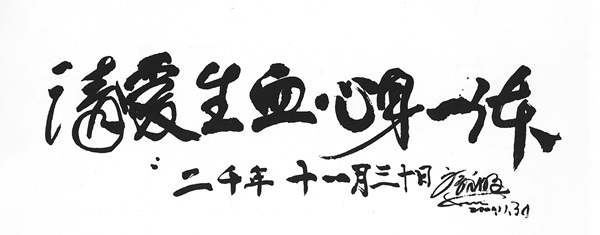 请爱生血·心身一体
二千年 十一月三十日
2000.11.30